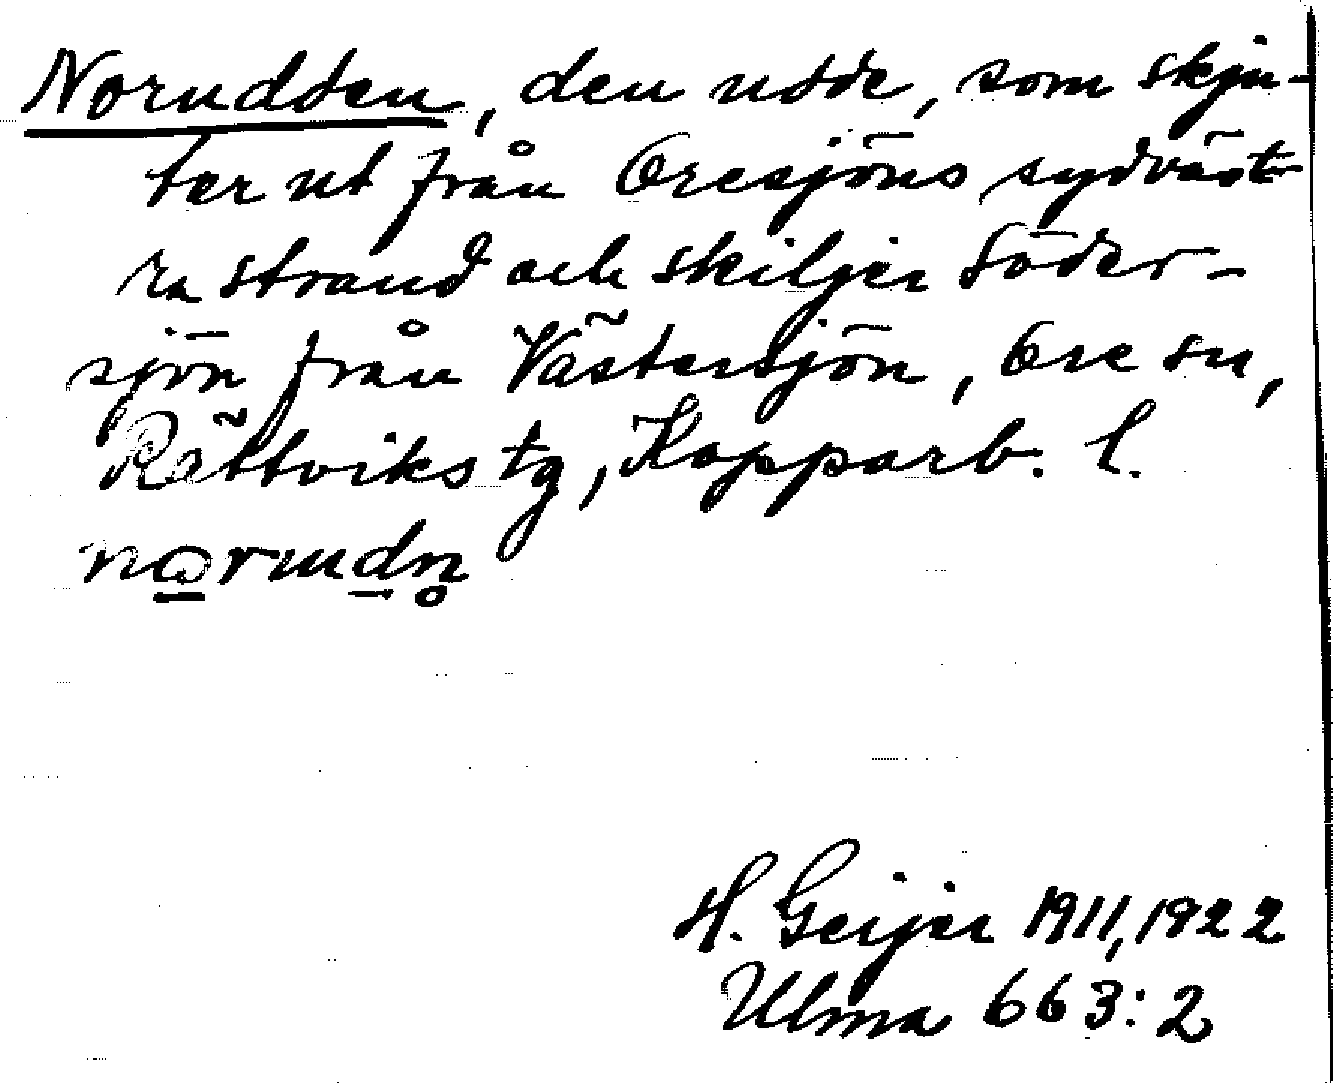 Norudden, den udde, som skju-
ter ut från Oresjöns sydväst
ra strand och skiljer Söder-
sjön från Västersjön, Ore sn,
Rättviks tg, Kopparb. l.
norudn̥
H. Geijer 1911, 1922
Ulma 663:2